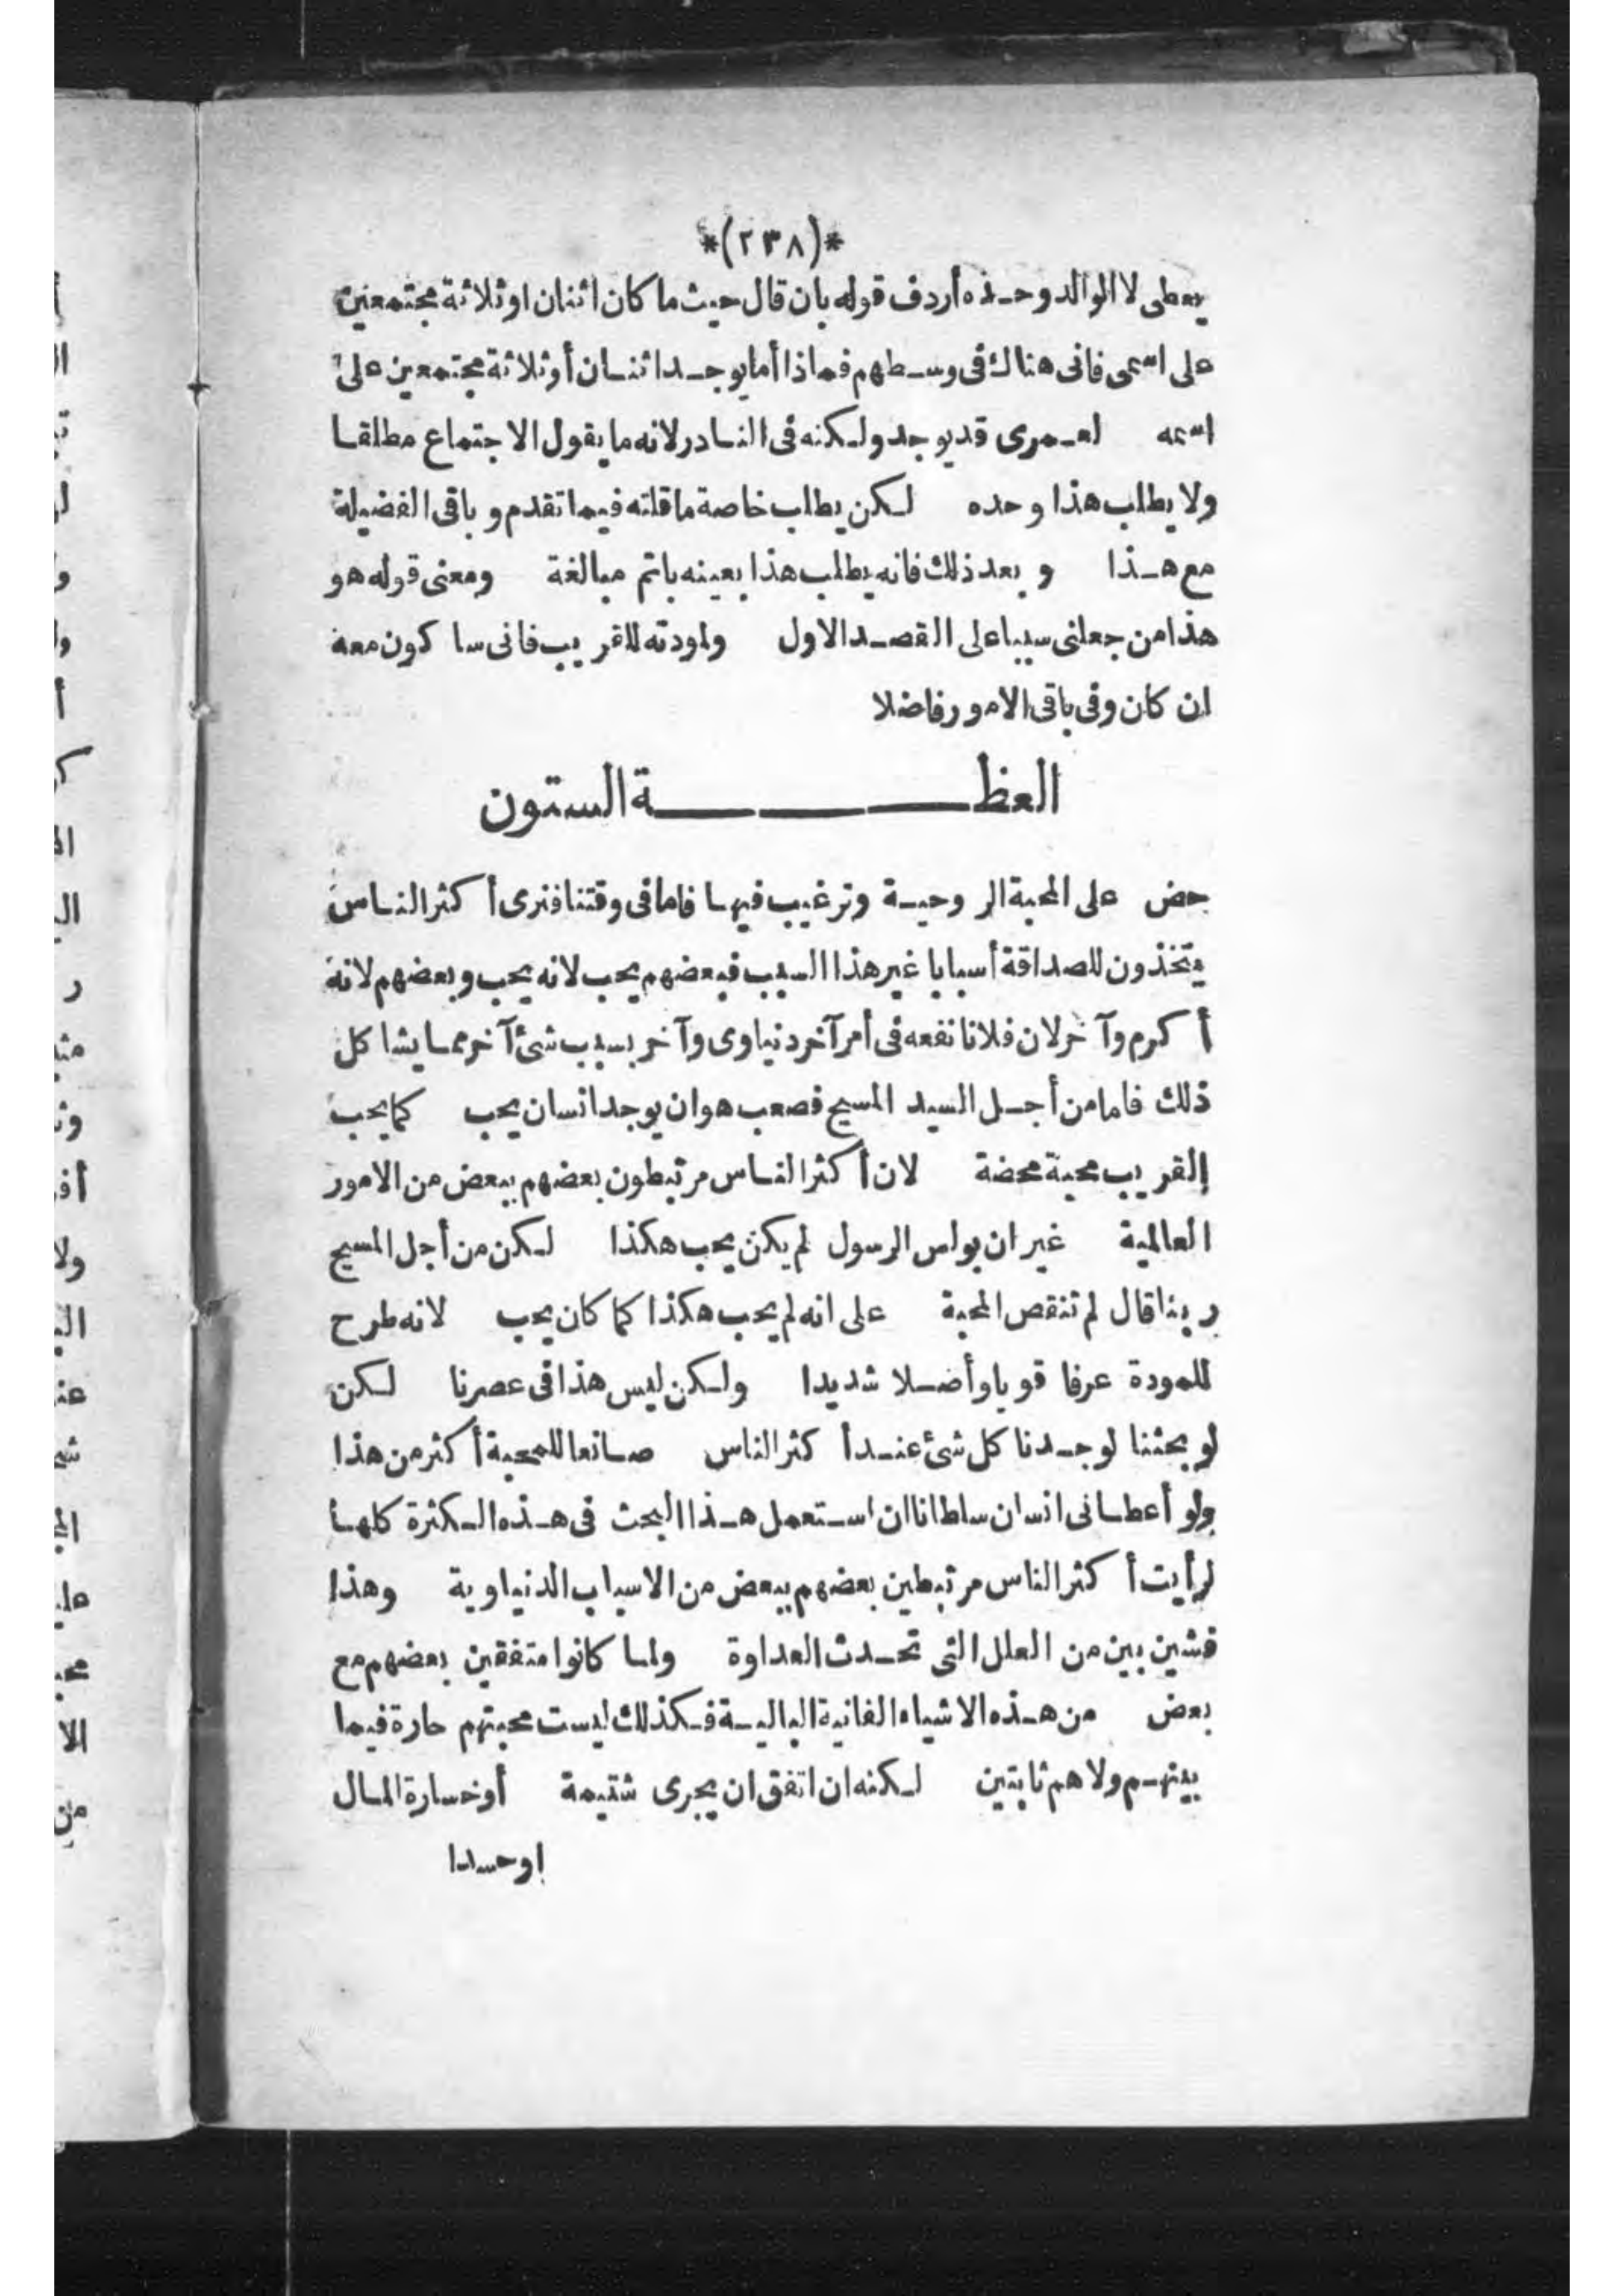 *(٢٣٨)*
يعطى لا الوالد وحده أردف قوله بان قال حيث ما كان اثنان او ثلاثة مجتمعين
على اسمى فانى هناك فى وسطهم فماذا أما يوجد اثنان أو ثلاثة مجتمعين على
اسمه لعمرى قد يوجد ولكنه فى النادر لانه ما يقول الاجتماع مطلقا
ولا يطلب هذا وحده لكن يطلب خاصة ما قلته فيما تقدم وباقى الفضيلة
مع هذا وبعد ذلك فانه يطلب هذا بعينه باتم مبالغة ومعنى قوله هو
هذا من جعلنى سببا على القصد الاول ولودته للقريب فانى سا كون معه
ان كان وفى باقى الامور فاضلا
العظة الستون
حض على المحبة الروحية وترغيب فيها فاما فى وقتنا فنرى أكثر الناس
يتخذون للصداقة أسبابا غير هذا السبب فبعضهم يحب لانه يحب وبعضهم لانه
أكرم وآخر لان فلانا نفعه فى أمر آخر دنياوى وآخر بسبب شئ آخر مما يشاكل
ذلك فاما من أجل السيد المسيح فصعب هو ان يوجد انسان يحب كما يحب
القريب محبة محضة لان أكثر الناس مرتبطون بعضهم ببعض من الامور
العالمية غير ان بولس الرسول لم يكن يحب هكذا لكن من أجل المسيح
ربنا قال لم تنقص المحبة على انه لم يحب هكذا كما كان يحب لانه طرح
للمودة عرفا قويا وأضلا شديدا ولكن ليس هذا فى عصرنا لكن
لو بحثنا لوجدنا كل شئ عند أكثر الناس صانعا للمحبة أكثر من هذا
ولو أعطانى انسان سلطانا ان استعمل هذا البحث فى هذه الكثرة كلها
لرأيت أكثر الناس مرتبطين بعضهم ببعض من الاسباب الدنياوية وهذا
فشين بين من العلل التى تحدث العداوة ولما كانوا متفقين بعضهم مع
بعض من هذه الاشياء الفانية البالية فكذلك ليست محبتهم حارة فيما
بينهم ولا هم ثابتين لكنه ان اتفق ان يجرى شتيمة أو خسارة المال
او حسدا